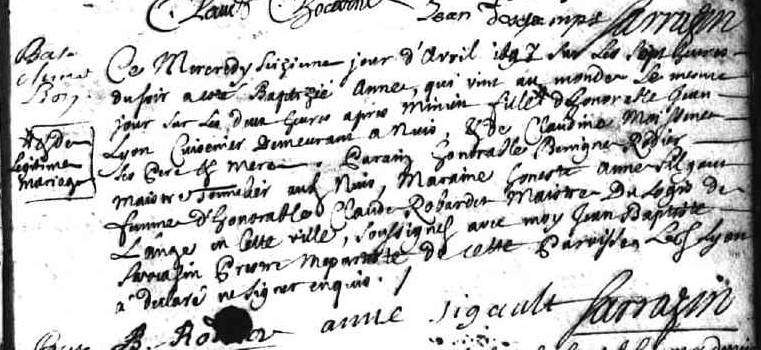 Jean Sarragin
Ce Mercredy Seizieme jour d'Avril 1697 Sur Les Sept heures
du soir a esté Baptizée Anne, qui vint au monde Le mesme
jour sur Les deux heures apres Minuit fille d'honorable Jean
Lyon Cuisinier Demeurant a Nuis, & de Claudine
Ses Pere & Mere. Parain honorable Benigne
Maistre Tonnelier aud Nuis, Maraine honeste Anne
femme d'honorable Claude Robardet Maistre Du Logis de
L'Ange en cette ville, Soussignés avec moy Jean Baptiste
Sarragin Prestre Mepartiste de cette Parroisse Led Lyon
a declaré ne signer enquis.
& de
Legitime
mariage
B. anne Sigault Sarragin